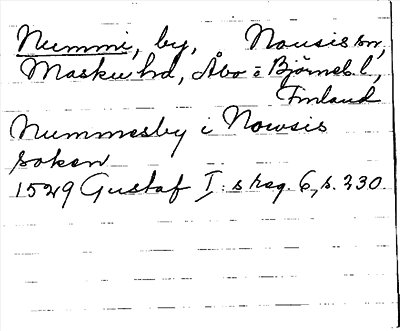 Nummi, by, Nousis sn,
Masku hd, Åbo o Björneb. l,
Finland
Nummesby i Nowsis
soken
1529 Gustaf I: s reg. 6, s. 230.